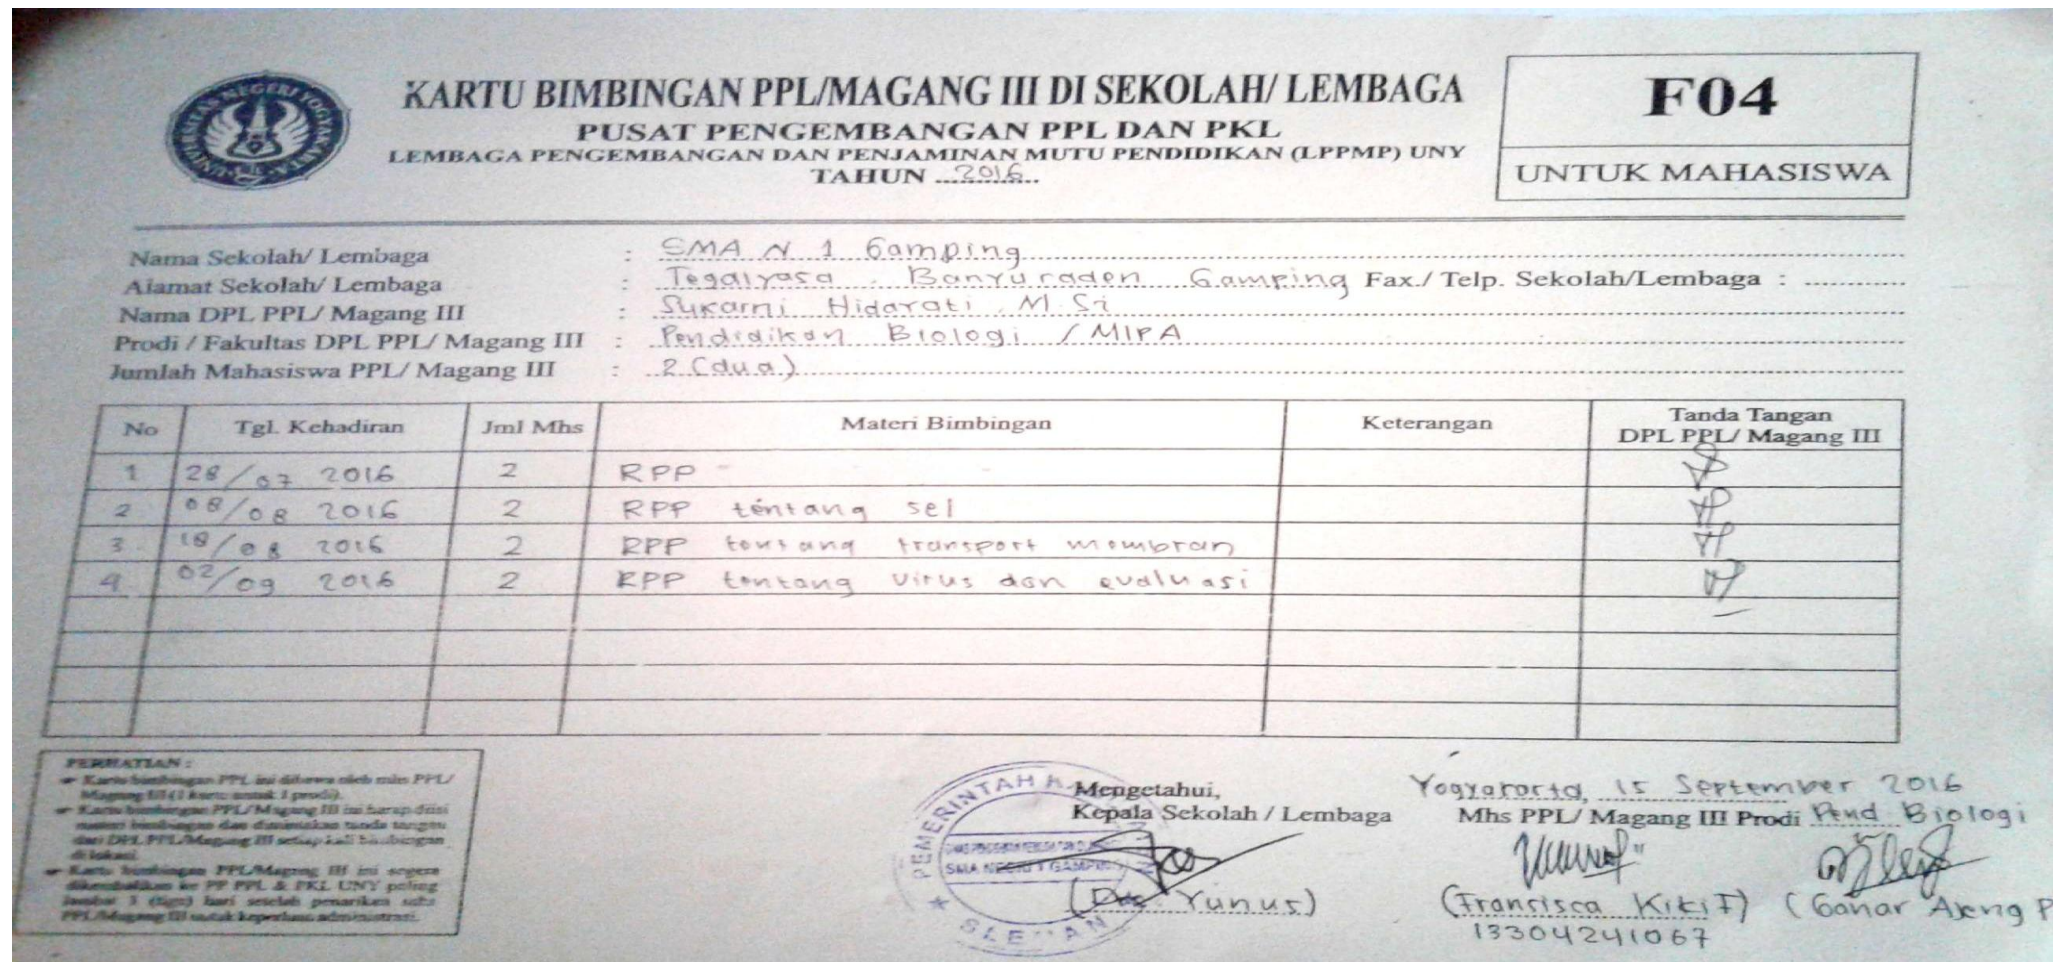 UNIVERSITAS NEGERI YOGYAKARTA
KARTU BIMBINGAN PPL/MAGANG III DI SEKOLAH/ LEMBAGA
PUSAT PENGEMBANGAN PPL DAN PKL
LEMBAGA PENGEMBANGAN DAN PENJAMINAN MUTU PENDIDIKAN (LPPMP) UNY
TAHUN 2016
F04
UNTUK MAHASISWA
Nama Sekolah/ Lembaga : SMA N 1 Gamping
Alamat Sekolah/ Lembaga : Tegalyasa, Banyuraden Gamping Fax./ Telp. Sekolah/Lembaga :
Nama DPL PPL/ Magang III : Sukarni Hidayati, M.Si
Prodi / Fakultas DPL PPL/ Magang III : Pendidikan Biologi / MIPA
Jumlah Mahasiswa PPL/ Magang III : 2 (dua)
No Tgl. Kehadiran Jml Mhs Materi Bimbingan Keterangan Tanda Tangan DPL PPL/ Magang III
1 28/07 2016 2 RPP
2 08/08 2016 2 RPP tentang sel
3. 18/08 2016 2 RPP tentang transport membran
4. 02/09 2016 2 RPP tentang virus dan evaluasi
PERHATIAN :
Kartu bimbingan PPL ini dibawa oleh mhs PPL/
Magang III (1 kartu untuk 1 prodi).
Kartu bimbingan PPL/Magang III ini harap diisi
materi bimbingan dan dimintakan tanda tangan
dari DPL PPL/Magang III setiap kali bimbingan
di lokasi.
Kartu bimbingan PPL/Magang III ini segera
dikembalikan ke PP PPL & PKL UNY paling
lambat 3 (tiga) hari setelah penarikan mhs
PPL/Magang III untuk keperluan administrasi.
PEMERINTAH
SMA NEGERI 1 GAMPING
SLEMAN
Mengetahui,
Kepala Sekolah / Lembaga
(Drs Yunus)
Yogyakarta, 15 September 2016
Mhs PPL/ Magang III Prodi Pend Biologi
(Fransisca Kiki F) (Ganar Ajeng P
13304241067